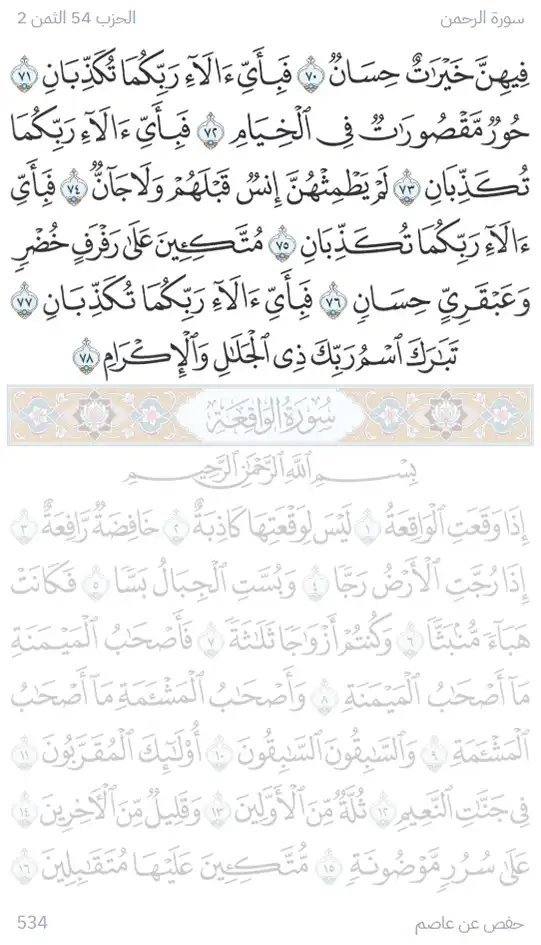 سورة الرحمن
الحزب 54 الثمن 2
فِيهِنَّ خَيْرَٰتٌ حِسَانٌ ٧٠ فَبِأَيِّ ءَالَآءِ رَبِّكُمَا تُكَذِّبَانِ ٧١
حُورٌ مَّقْصُورَٰتٌ فِى ٱلْخِيَامِ ٧٢ فَبِأَيِّ ءَالَآءِ رَبِّكُمَا
تُكَذِّبَانِ ٧٣ لَمْ يَطْمِثْهُنَّ إِنسٌ قَبْلَهُمْ وَلَا جَآنٌّ ٧٤ فَبِأَيِّ
ءَالَآءِ رَبِّكُمَا تُكَذِّبَانِ ٧٥ مُتَّكِـِٔينَ عَلَىٰ رَفْرَفٍ خُضْرٍ
وَعَبْقَرِىٍّ حِسَانٍ ٧٦ فَبِأَيِّ ءَالَآءِ رَبِّكُمَا تُكَذِّبَانِ ٧٧
تَبَٰرَكَ ٱسْمُ رَبِّكَ ذِى ٱلْجَلَٰلِ وَٱلْإِكْرَامِ ٧٨
سُورَةُ الْوَاقِعَةِ
بِسْمِ ٱللَّهِ ٱلرَّحْمَٰنِ ٱلرَّحِيمِ
إِذَا وَقَعَتِ ٱلْوَاقِعَةُ ١ لَيْسَ لِوَقْعَتِهَا كَاذِبَةٌ ٢ خَافِضَةٌ رَّافِعَةٌ ٣
إِذَا رُجَّتِ ٱلْأَرْضُ رَجًّا ٤ وَبُسَّتِ ٱلْجِبَالُ بَسًّا ٥ فَكَانَتْ
هَبَآءً مُّنۢبَثًّا ٦ وَكُنتُمْ أَزْوَٰجًا ثَلَٰثَةً ٧ فَأَصْحَٰبُ ٱلْمَيْمَنَةِ
مَآ أَصْحَٰبُ ٱلْمَيْمَنَةِ ٨ وَأَصْحَٰبُ ٱلْمَشْـَٔمَةِ مَآ أَصْحَٰبُ
ٱلْمَشْـَٔمَةِ ٩ وَٱلسَّٰبِقُونَ ٱلسَّٰبِقُونَ ١٠ أُو۟لَٰٓئِكَ ٱلْمُقَرَّبُونَ ١١
فِى جَنَّٰتِ ٱلنَّعِيمِ ١٢ ثُلَّةٌ مِّنَ ٱلْأَوَّلِينَ ١٣ وَقَلِيلٌ مِّنَ ٱلْـَٔاخِرِينَ ١٤
عَلَىٰ سُرُرٍ مَّوْضُونَةٍ ١٥ مُّتَّكِـِٔينَ عَلَيْهَا مُتَقَٰبِلِينَ ١٦
حفص عن عاصم
534